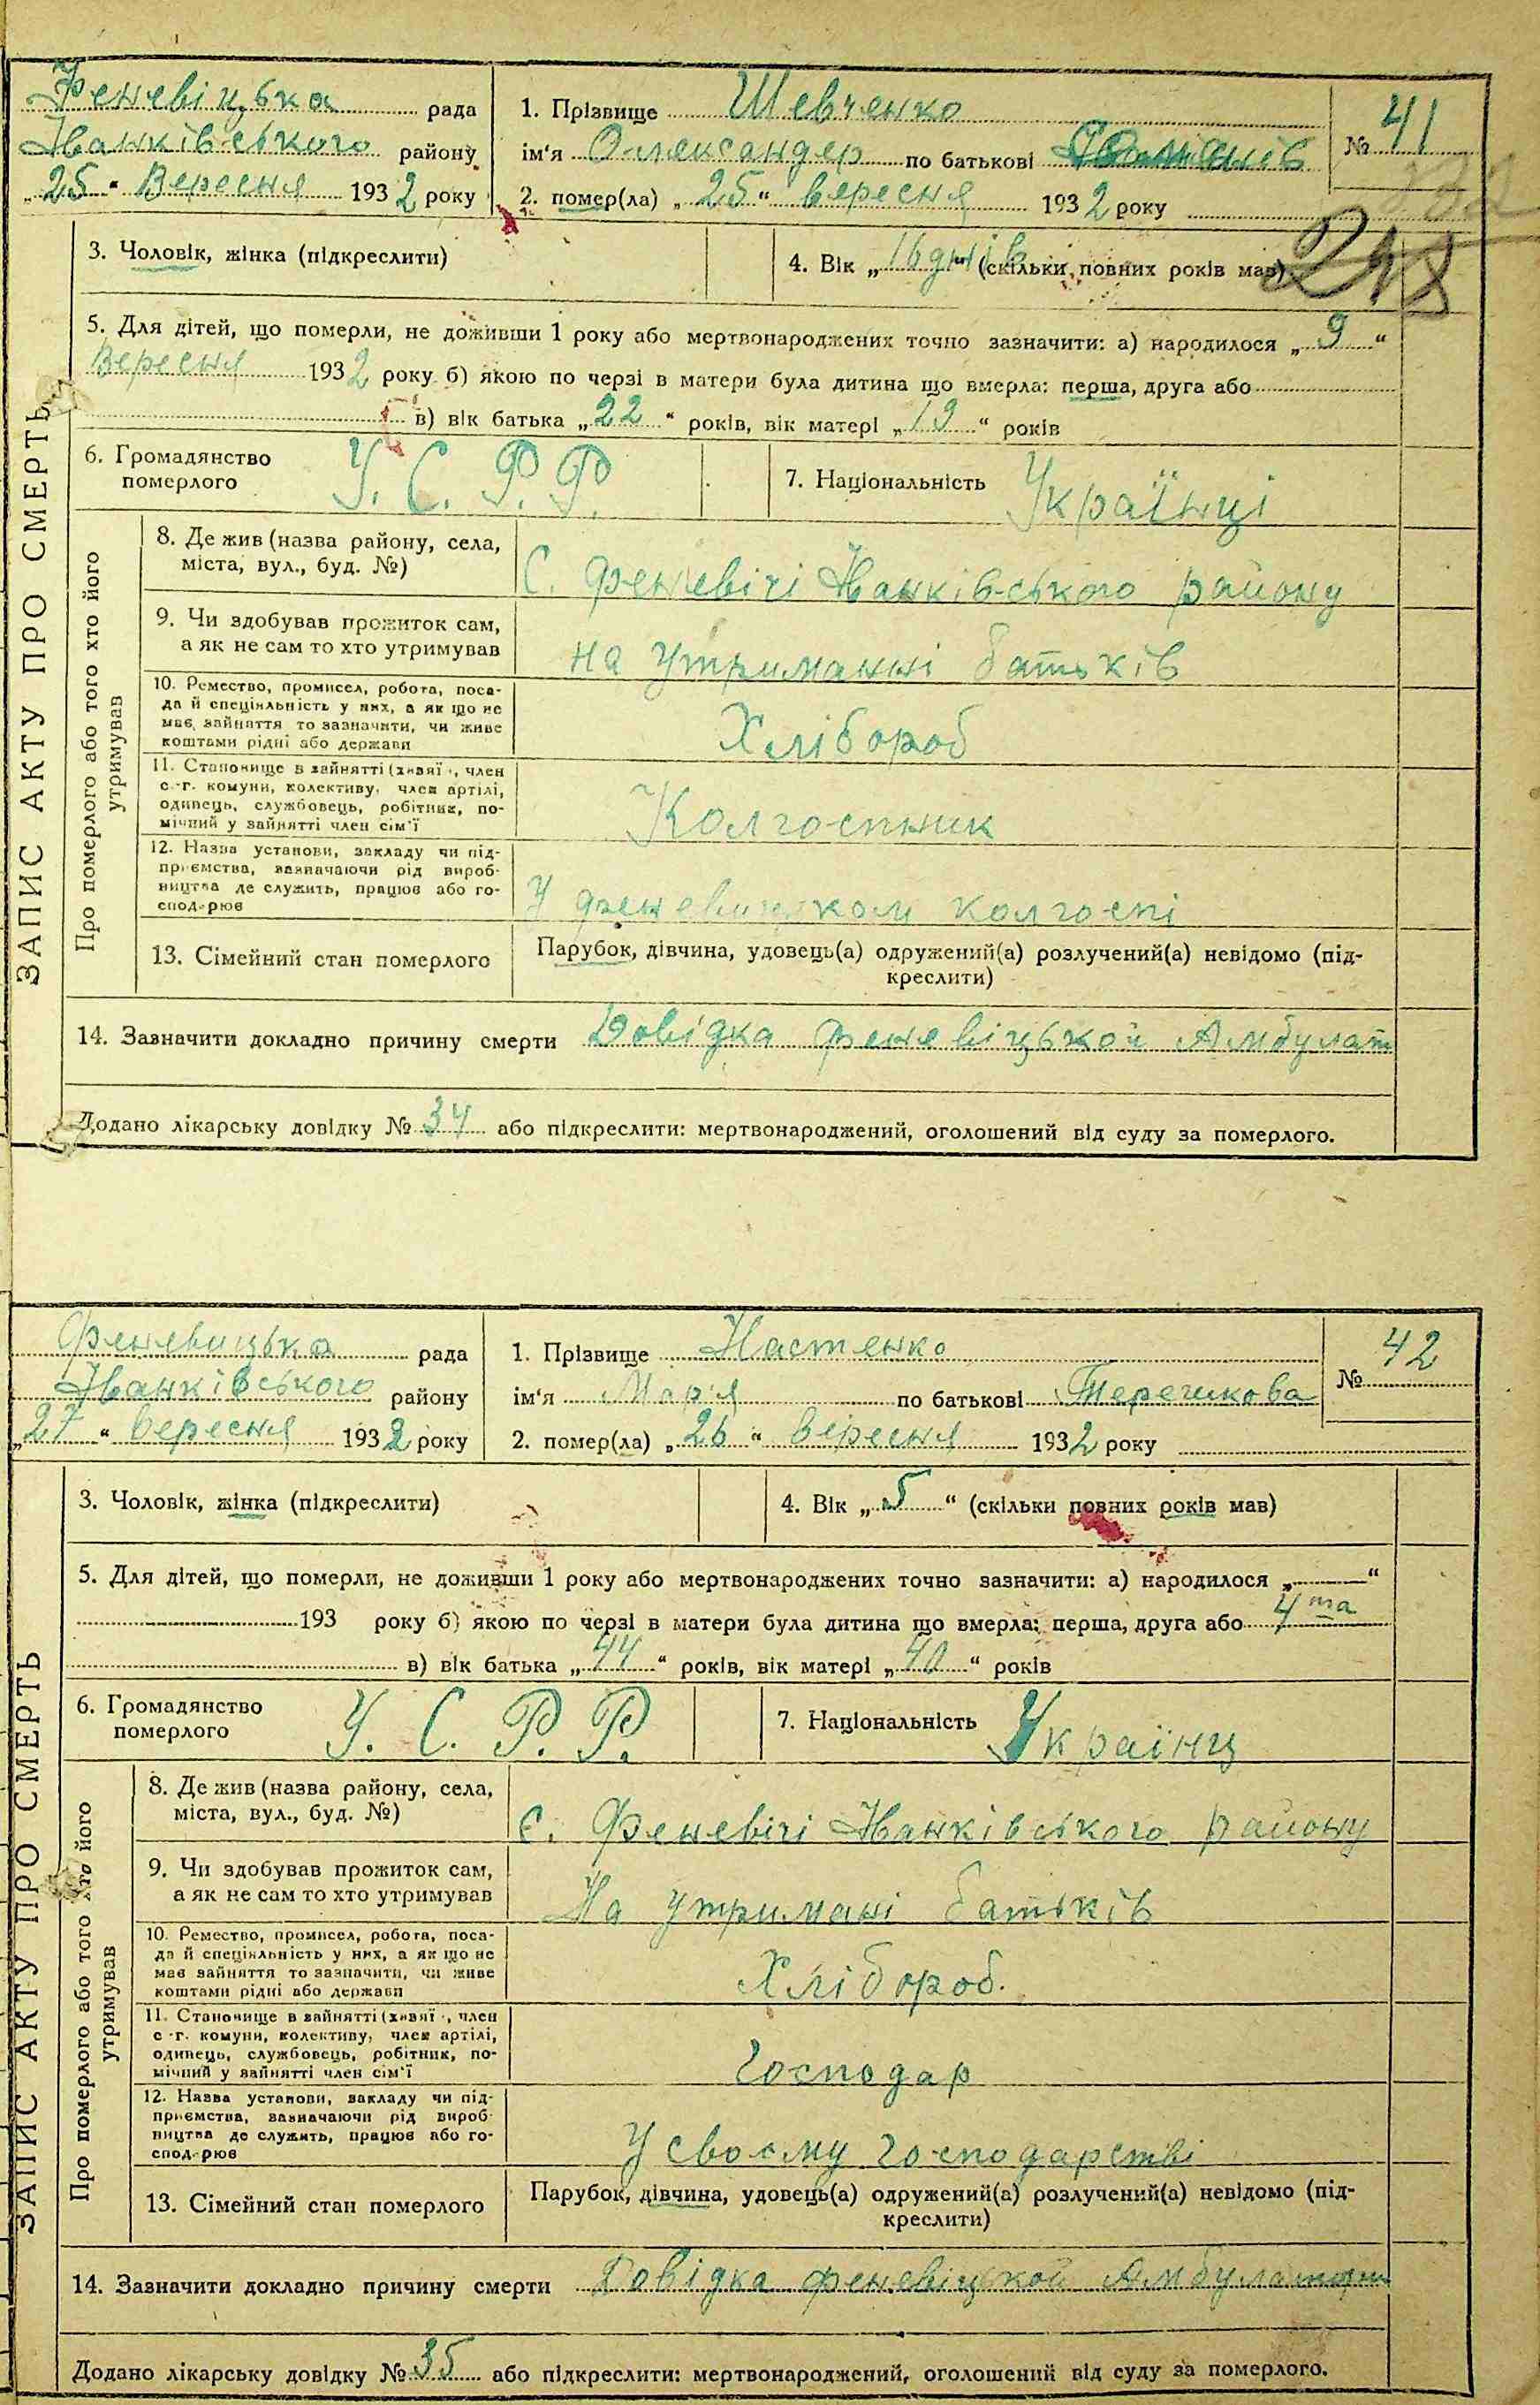 Феневіцька рада
Іванківського району
„25“ Вересня 1932 року
1. Прізвище Шевченко
ім‘я Олександер по батькові
№ 41
2. помер(ла) „25“ вересня 1932 року
248
3. Чоловік, жінка (підкреслити)
4. Вік „16 днів“ (скільки повних років мав)
5. Для дітей, що померли, не доживши 1 року або мертвонароджених точно зазначити: а) народилося „9“
Вересня 1932 року б) якою по черзі в матери була дитина що вмерла: перша, друга або
в) вік батька „22“ років, вік матері „19“ років
6. Громадянство
померлого
У. С. Р. Р.
7. Національність Українці
ЗАПИС АКТУ ПРО СМЕРТЬ
Про померлого або того хто його
утримував
8. Де жив (назва району, села,
міста, вул., буд. №)
С. Феневічі Іванківського району
9. Чи здобував прожиток сам,
а як не сам то хто утримував
на утриманні батьків
10. Ремество, промисел, робота, поса-
да й спеціяльність у них, а як що не
має зайняття то зазначити, чи живе
коштами рідні або держави
Хлібороб
11. Становище в зайнятті (хазяї , член
с.-г. комуни, колективу, член артілі,
одинець, службовець, робітник, по-
мічний у зайнятті член сім‘ї
Колгоспник
12. Назва установи, закладу чи під-
приємства, зазначаючи рід вироб-
ництва де служить, працює або го-
сподарює
У феневицьком колгоспі
13. Сімейний стан померлого
Парубок, дівчина, удовець(а) одружений(а) розлучений(а) невідомо (під-
креслити)
14. Зазначити докладно причину смерти Довідка феневіцькой Амбулат
Додано лікарську довідку № 34 або підкреслити: мертвонароджений, оголошений від суду за померлого.
Феневицька рада
Іванківського району
„27“ вересня 1932 року
1. Прізвище Настенко
ім‘я Марія по батькові Терешкова
№ 42
2. помер(ла) „26“ вересня 1932 року
3. Чоловік, жінка (підкреслити)
4. Вік „5“ (скільки повних років мав)
5. Для дітей, що померли, не доживши 1 року або мертвонароджених точно зазначити: а) народилося „—“
193 року б) якою по черзі в матери була дитина що вмерла: перша, друга або 4та
в) вік батька „44“ років, вік матері „40“ років
6. Громадянство
померлого
У. С. Р. Р.
7. Національність Українц
ЗАПИС АКТУ ПРО СМЕРТЬ
Про померлого або того хто його
утримував
8. Де жив (назва району, села,
міста, вул., буд. №)
с. Феневічі Іванківського району
9. Чи здобував прожиток сам,
а як не сам то хто утримував
На утримані батьків
10. Ремество, промисел, робота, поса-
да й спеціяльність у них, а як що не
має зайняття то зазначити, чи живе
коштами рідні або держави
Хлібороб.
11. Становище в зайнятті (хазяї , член
с.-г. комуни, колективу, член артілі,
одинець, службовець, робітник, по-
мічний у зайнятті член сім‘ї
Господар
12. Назва установи, закладу чи під-
приємства, зазначаючи рід вироб-
ництва де служить, працює або го-
сподарює
У своєму господарстві
13. Сімейний стан померлого
Парубок, дівчина, удовець(а) одружений(а) розлучений(а) невідомо (під-
креслити)
14. Зазначити докладно причину смерти Довідка феневіцкой
Додано лікарську довідку № 35 або підкреслити: мертвонароджений, оголошений від суду за померлого.